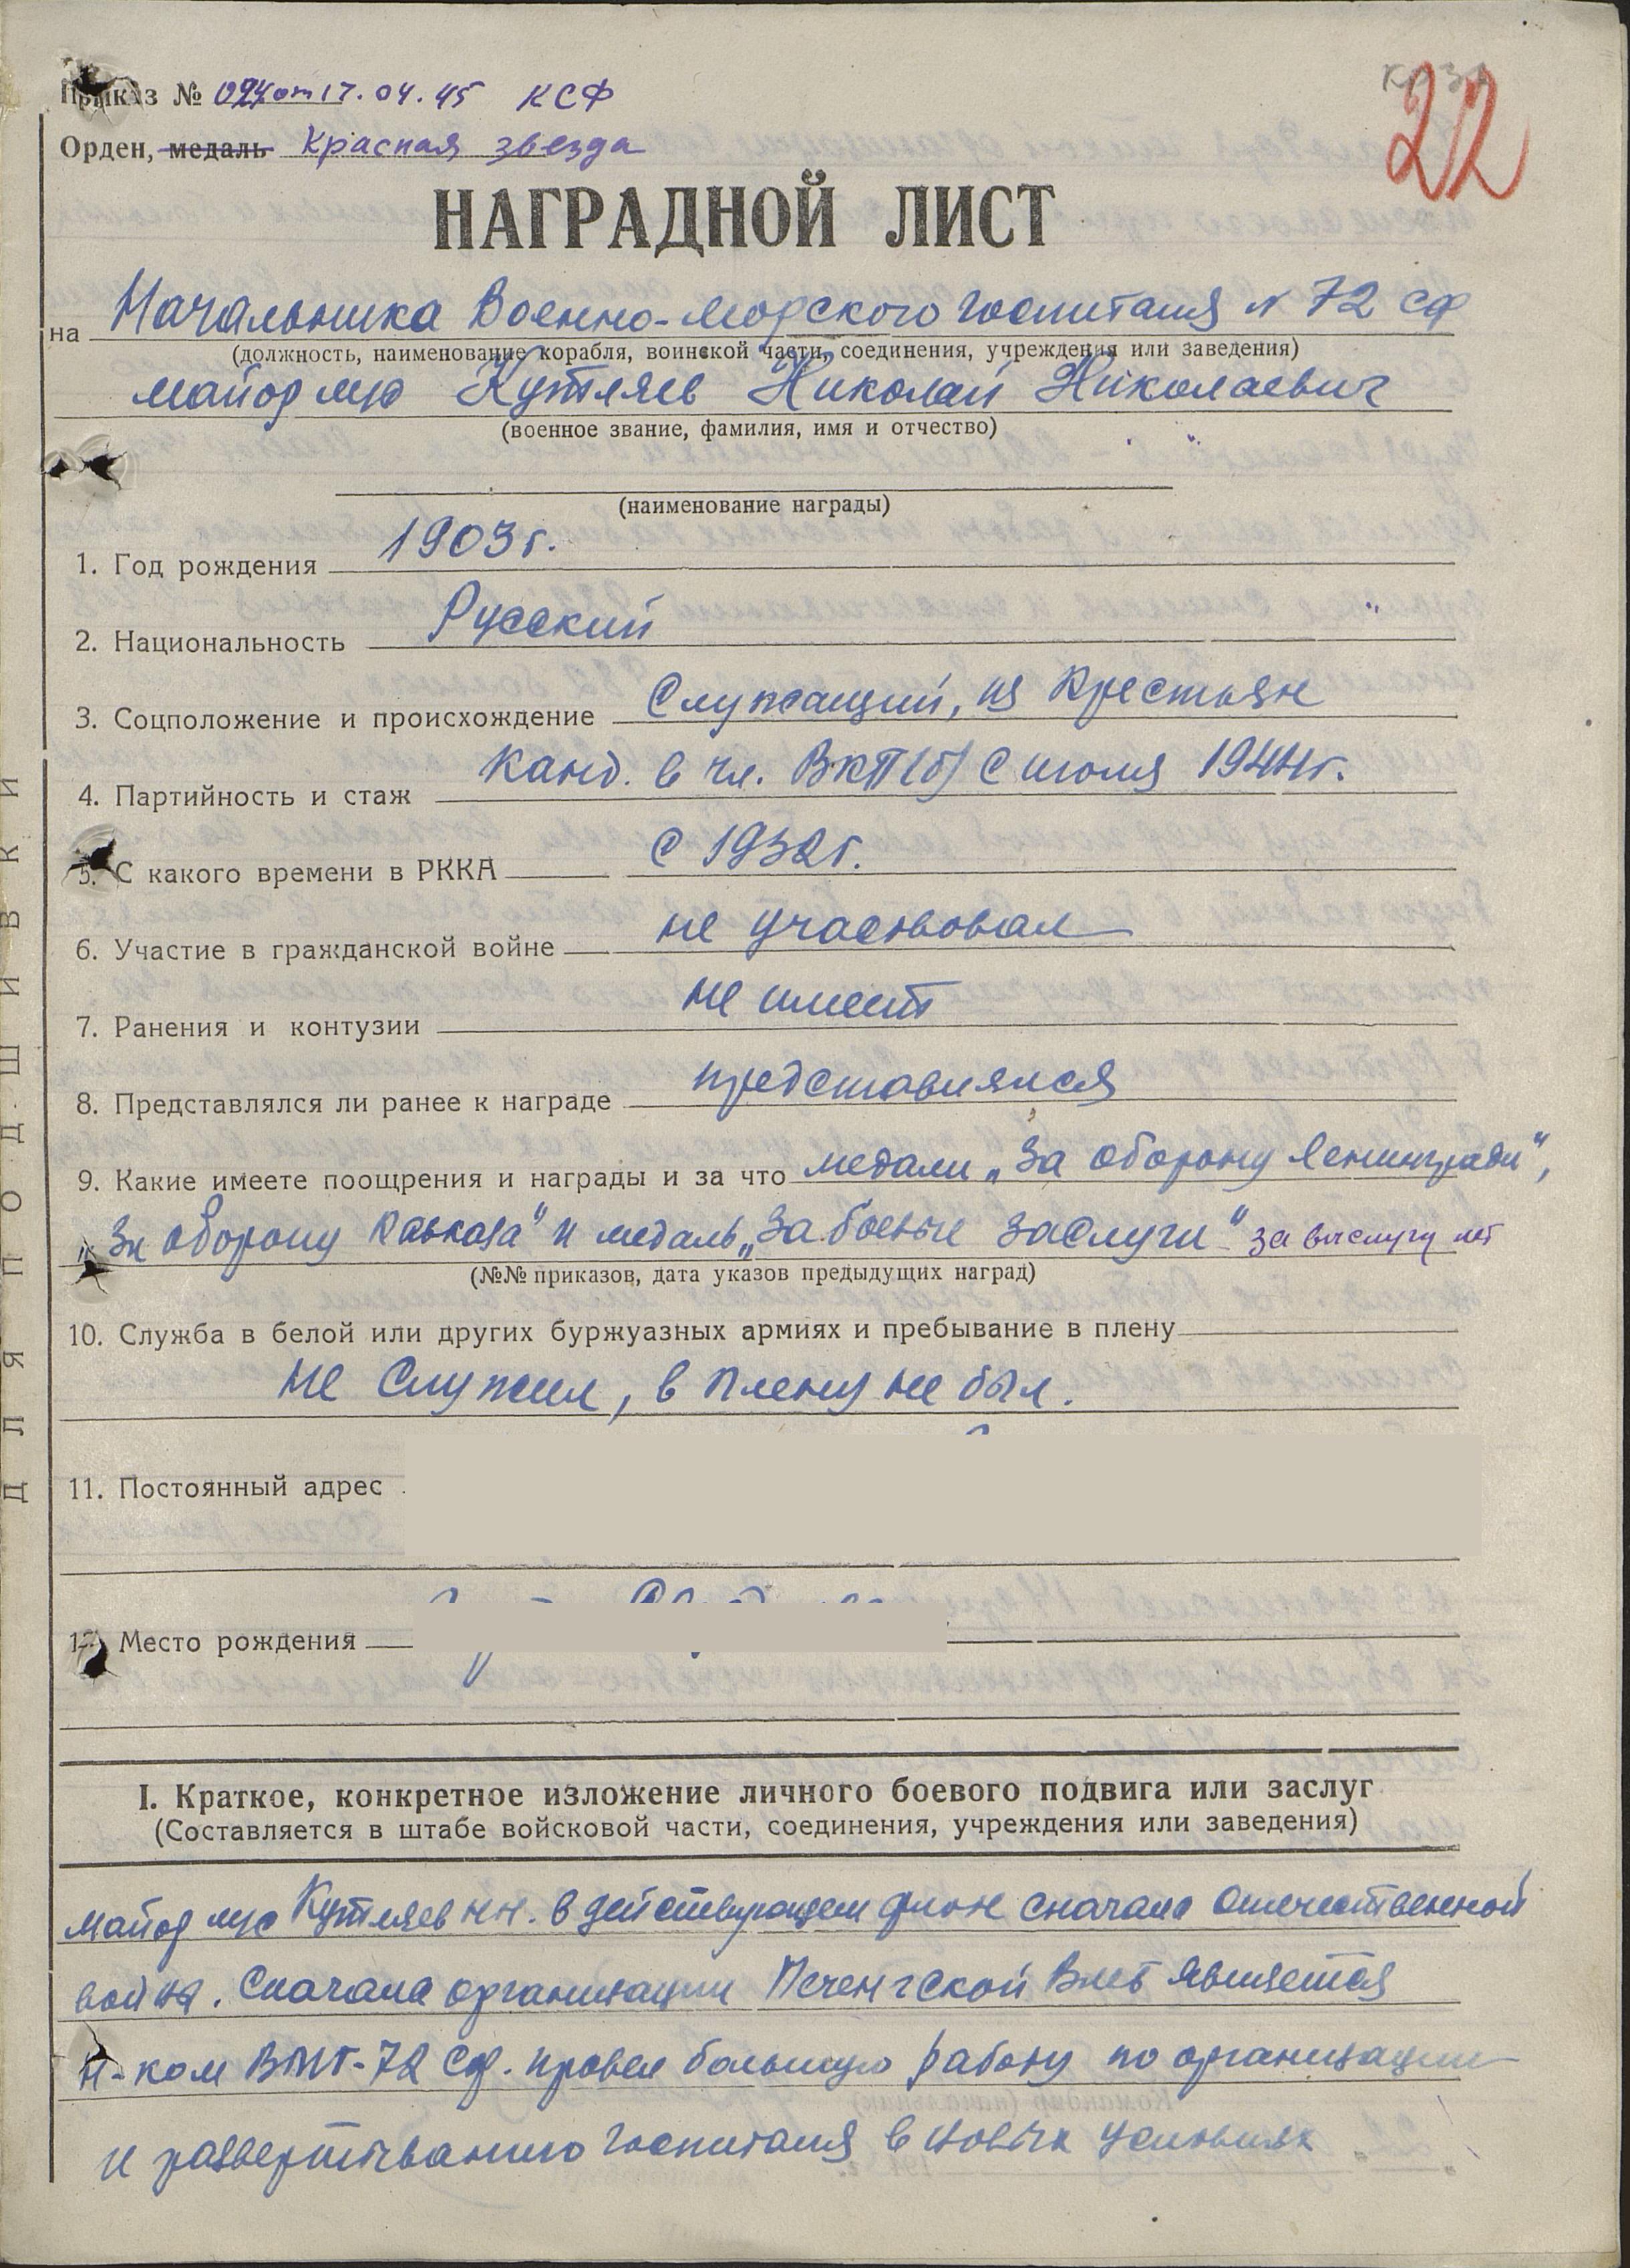 Приказ № 024 от 17.04.45 КСФ
22
Орден, медаль Красная звезда
НАГРАДНОЙ ЛИСТ
на Начальника Военно-морского госпиталя N 72 СФ
(должность, наименование корабля, воинской части, соединения, учреждения или заведения)
майор м/с Кутляев Николай Николаевич
(военное звание, фамилия, имя и отчество)
(наименование награды)
1. Год рождения 1903 г.
2. Национальность Русский
3. Соцположение и происхождение Служащий, из крестьян
4. Партийность и стаж Канд. в чл. ВКП(б) с июля 1944 г.
5. С какого времени в РККА с 1932 г.
6. Участие в гражданской войне не участвовал
7. Ранения и контузии не имеет
8. Представлялся ли ранее к награде представлялся
9. Какие имеете поощрения и награды и за что медали „За оборону Ленинграда",
„За оборону Кавказа" и медаль „За боевые заслуги" за выслугу лет
(№№ приказов, дата указов предыдущих наград)
10. Служба в белой или других буржуазных армиях и пребывание в плену
не служил, в плену не был.
11. Постоянный адрес
12. Место рождения
I. Краткое, конкретное изложение личного боевого подвига или заслуг
(Составляется в штабе войсковой части, соединения, учреждения или заведения)
майор м/с Кутляев Н.Н. в действующем флоте сначала Отечественной
войны. Сначала организации Печенгской ВМБ является
н-ком ВМГ-72 СФ. провел большую работу по организации
и развертыванию госпиталя в новых условиях
ДЛЯ ПОДШИВКИ